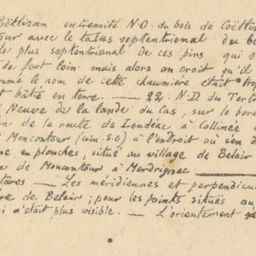 extrémité N.O. du bois de Coëtlo
our avec le talus septentrional du bo
le plus septentrional de ces pins qui o
de fort loin mais alors on croit qu'il
le nom de cette chaumière était
bâti en terre. — 22: N.D. du
Neuve de la lande du las, sur le bor
de la route de Loudéac à Collinée
Moncontour à l'endroit où
en planches, situé au village de Belair
de Moncontour à Merdrignac
— Les méridiennes et perpendicu
de Belair; pour les points situés au
n'était plus visible. — L'orientement